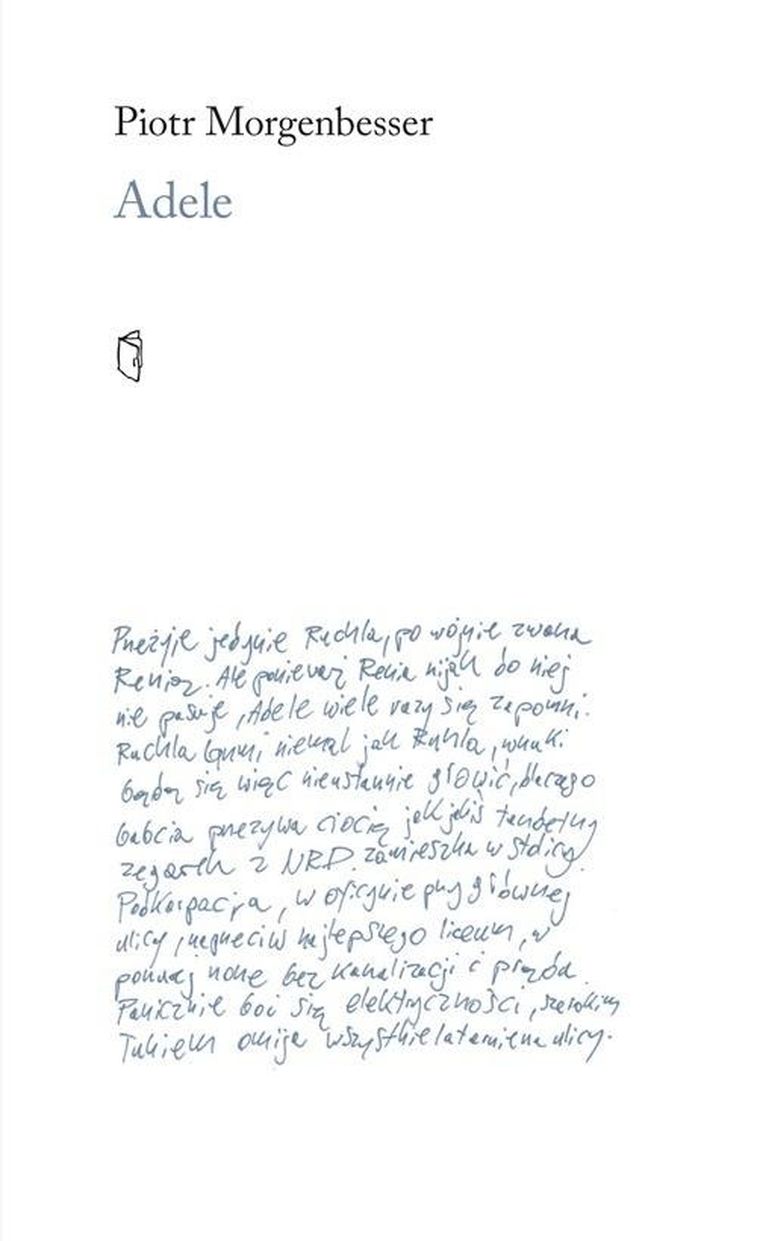 Piotr Morgenbesser
Adele
Przeżyje jedynie Ruchla, po wojnie zwana
Renią. Ale ponieważ Renia nijak do niej
nie pasuje, Adele wiele razy się zapomni.
Ruchla brzmi niemal jak Ruhla, wnuki
będą się więc nieustannie głowić, dlaczego
babcia przezywa ciocię jak jakiś tandetny
zegarek z NRD. Zamieszka w stolicy
Podkarpacja, w oficynie przy głównej
ulicy, naprzeciw najlepszego liceum, w
ponurej norze bez kanalizacji i prądu.
Panicznie boi się elektryczności, szerokim
łukiem omija wszystkie latarnie na ulicy.